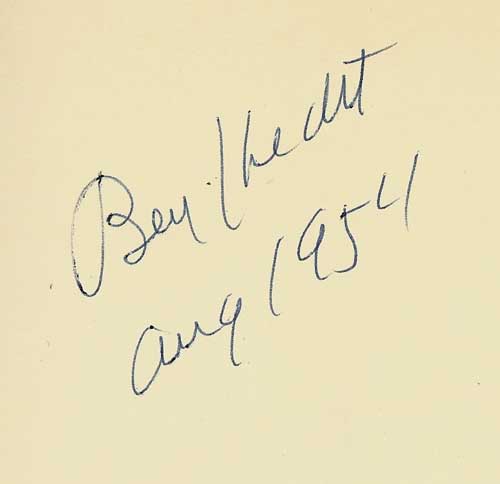 Ben Hecht
Aug 1954